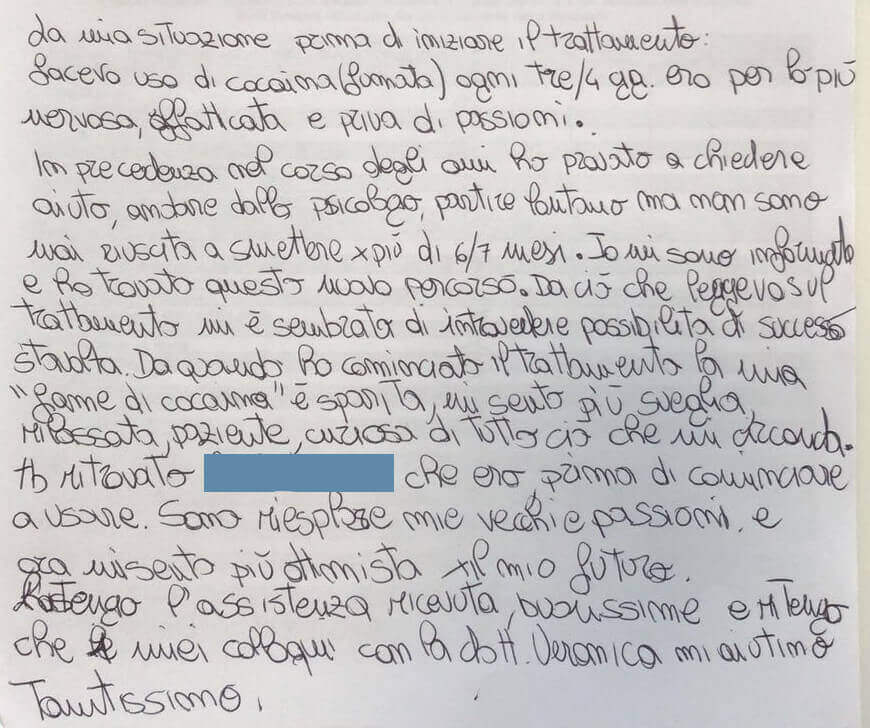 La mia situazione prima di iniziare il trattamento:
facevo uso di cocaina (fumata) ogni tre/4 gg. ero per lo più
nervosa, affaticata e priva di passioni.
In precedenza nel corso degli anni ho provato a chiedere
aiuto, andare dallo psicologo, partire lontano ma non sono
mai riuscita a smettere x più di 6/7 mesi. Io mi sono informata
e ho trovato questo nuovo percorso. Da ciò che leggevo sul
trattamento mi è sembrato di intravedere possibilità di successo
stavolta. Da quando ho cominciato il trattamento la mia
"fame di cocaina" è sparita, mi sento più sveglia,
rilassata, paziente, curiosa di tutto ciò che mi circonda.
Ho ritrovato che ero prima di cominciare
a usare. Sono riesplose mie vecchie passioni, e
ora mi sento più ottimista x il mio futuro.
Ritengo l'assistenza ricevuta, buonissime e ritengo
che i miei colloqui con la dott. Veronica mi aiutino
Tantissimo.